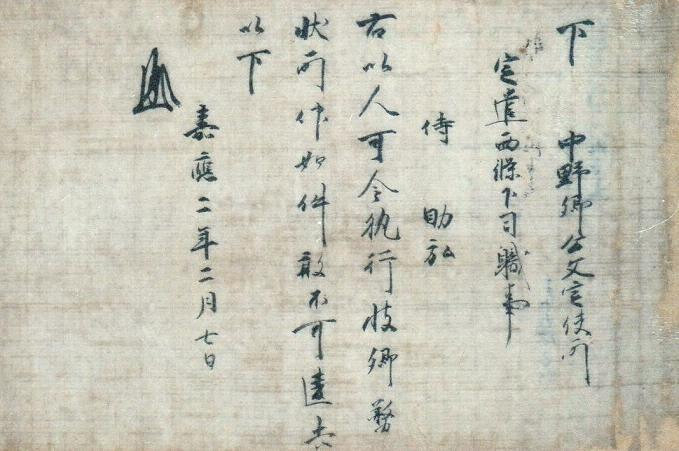 下　中野郷公文定使所
定遣西條下司職事
侍　助弘
右以人可令執行彼郷務
状所仰如件敢不可遺失
以下
嘉應二年二月七日